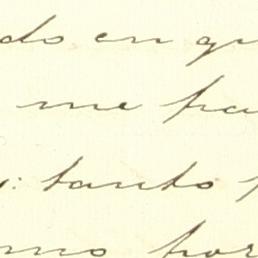 do en qu
me ha
: tanto
mo por